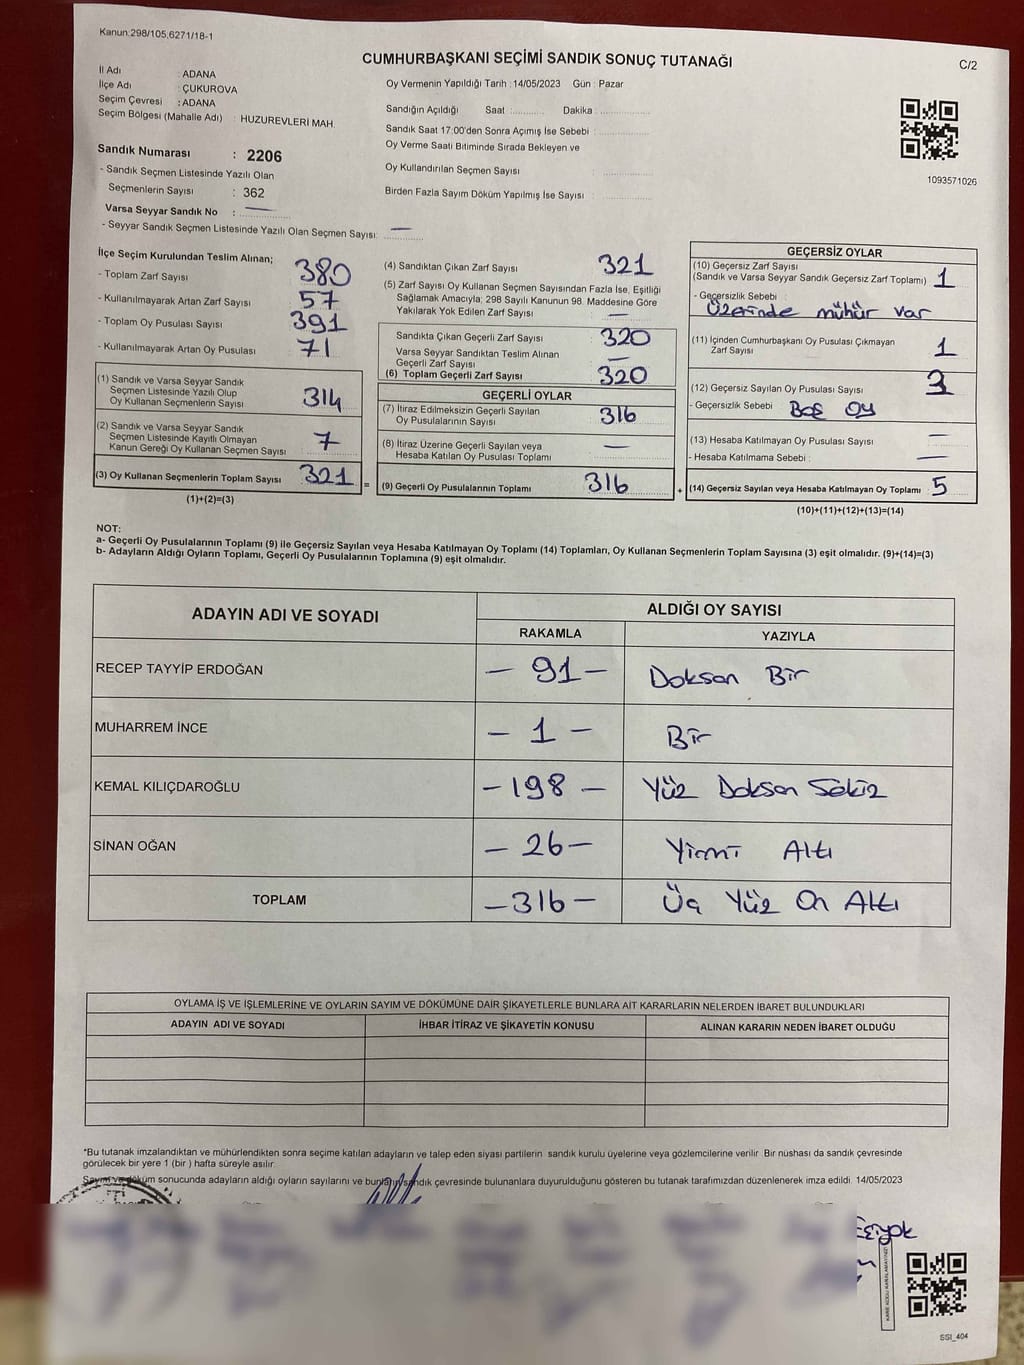 Kanun:298/105,6271/18-1
CUMHURBAŞKANI SEÇİMİ SANDIK SONUÇ TUTANAĞI
C/2
İl Adı : ADANA
İlçe Adı : ÇUKUROVA
Seçim Çevresi : ADANA
Seçim Bölgesi (Mahalle Adı) : HUZUREVLERİ MAH.
Sandık Numarası : 2206
- Sandık Seçmen Listesinde Yazılı Olan
Seçmenlerin Sayısı : 362
Varsa Seyyar Sandık No : —
- Seyyar Sandık Seçmen Listesinde Yazılı Olan Seçmen Sayısı: —
Oy Vermenin Yapıldığı Tarih : 14/05/2023 Gün : Pazar
Sandığın Açıldığı Saat :............ Dakika :................
Sandık Saat 17:00'den Sonra Açımış İse Sebebi :................
Oy Verme Saati Bitiminde Sırada Bekleyen ve
Oy Kullandırılan Seçmen Sayısı :................
Birden Fazla Sayım Döküm Yapılmış İse Sayısı :................
1093571026
İlçe Seçim Kurulundan Teslim Alınan;
- Toplam Zarf Sayısı 380
- Kullanılmayarak Artan Zarf Sayısı 57
- Toplam Oy Pusulası Sayısı 391
- Kullanılmayarak Artan Oy Pusulası 71
(1) Sandık ve Varsa Seyyar Sandık
Seçmen Listesinde Yazılı Olup
Oy Kullanan Seçmenlerin Sayısı : 314
(2) Sandık ve Varsa Seyyar Sandık
Seçmen Listesinde Kayıtlı Olmayan
Kanun Gereği Oy Kullanan Seçmen Sayısı : 7
(3) Oy Kullanan Seçmenlerin Toplam Sayısı : 321
(1)+(2)=(3)
=
(4) Sandıktan Çıkan Zarf Sayısı 321
(5) Zarf Sayısı Oy Kullanan Seçmen Sayısından Fazla İse, Eşitliği
Sağlamak Amacıyla; 298 Sayılı Kanunun 98. Maddesine Göre
Yakılarak Yok Edilen Zarf Sayısı : —
Sandıkta Çıkan Geçerli Zarf Sayısı : 320
Varsa Seyyar Sandıktan Teslim Alınan
Geçerli Zarf Sayısı : —
(6) Toplam Geçerli Zarf Sayısı : 320
GEÇERLİ OYLAR
(7) İtiraz Edilmeksizin Geçerli Sayılan
Oy Pusulalarının Sayısı : 316
(8) İtiraz Üzerine Geçerli Sayılan veya
Hesaba Katılan Oy Pusulası Toplamı : —
(9) Geçerli Oy Pusulalarının Toplamı : 316
+
GEÇERSİZ OYLAR
(10) Geçersiz Zarf Sayısı :
(Sandık ve Varsa Seyyar Sandık Geçersiz Zarf Toplamı) 1
- Geçersizlik Sebebi :
Üzerinde mühür var
(11) İçinden Cumhurbaşkanı Oy Pusulası Çıkmayan
Zarf Sayısı : 1
(12) Geçersiz Sayılan Oy Pusulası Sayısı : 3
- Geçersizlik Sebebi : Boş Oy
(13) Hesaba Katılmayan Oy Pusulası Sayısı : —
- Hesaba Katılmama Sebebi : —
(14) Geçersiz Sayılan veya Hesaba Katılmayan Oy Toplamı : 5
(10)+(11)+(12)+(13)=(14)
NOT:
a- Geçerli Oy Pusulalarının Toplamı (9) ile Geçersiz Sayılan veya Hesaba Katılmayan Oy Toplamı (14) Toplamları, Oy Kullanan Seçmenlerin Toplam Sayısına (3) eşit olmalıdır. (9)+(14)=(3)
b- Adayların Aldığı Oyların Toplamı, Geçerli Oy Pusulalarının Toplamına (9) eşit olmalıdır.
ADAYIN ADI VE SOYADI
ALDIĞI OY SAYISI
RAKAMLA YAZIYLA
RECEP TAYYİP ERDOĞAN — 91 — Doksan Bir
MUHARREM İNCE — 1 — Bir
KEMAL KILIÇDAROĞLU — 198 — Yüz Doksan Sekiz
SİNAN OĞAN — 26 — Yirmi Altı
TOPLAM — 316 — Üç Yüz On Altı
OYLAMA İŞ VE İŞLEMLERİNE VE OYLARIN SAYIM VE DÖKÜMÜNE DAİR ŞİKAYETLERLE BUNLARA AİT KARARLARIN NELERDEN İBARET BULUNDUKLARI
ADAYIN ADI VE SOYADI İHBAR İTİRAZ VE ŞİKAYETİN KONUSU ALINAN KARARIN NEDEN İBARET OLDUĞU
*Bu tutanak imzalandıktan ve mühürlendikten sonra seçime katılan adayların ve talep eden siyasi partilerin sandık kurulu üyelerine veya gözlemcilerine verilir. Bir nüshası da sandık çevresinde
görülecek bir yere 1 (bir ) hafta süreyle asılır.
Sayım ve döküm sonucunda adayların aldığı oyların sayılarını ve bunların sandık çevresinde bulunanlara duyurulduğunu gösteren bu tutanak tarafımızdan düzenlenerek imza edildi. 14/05/2023
SSİ_404